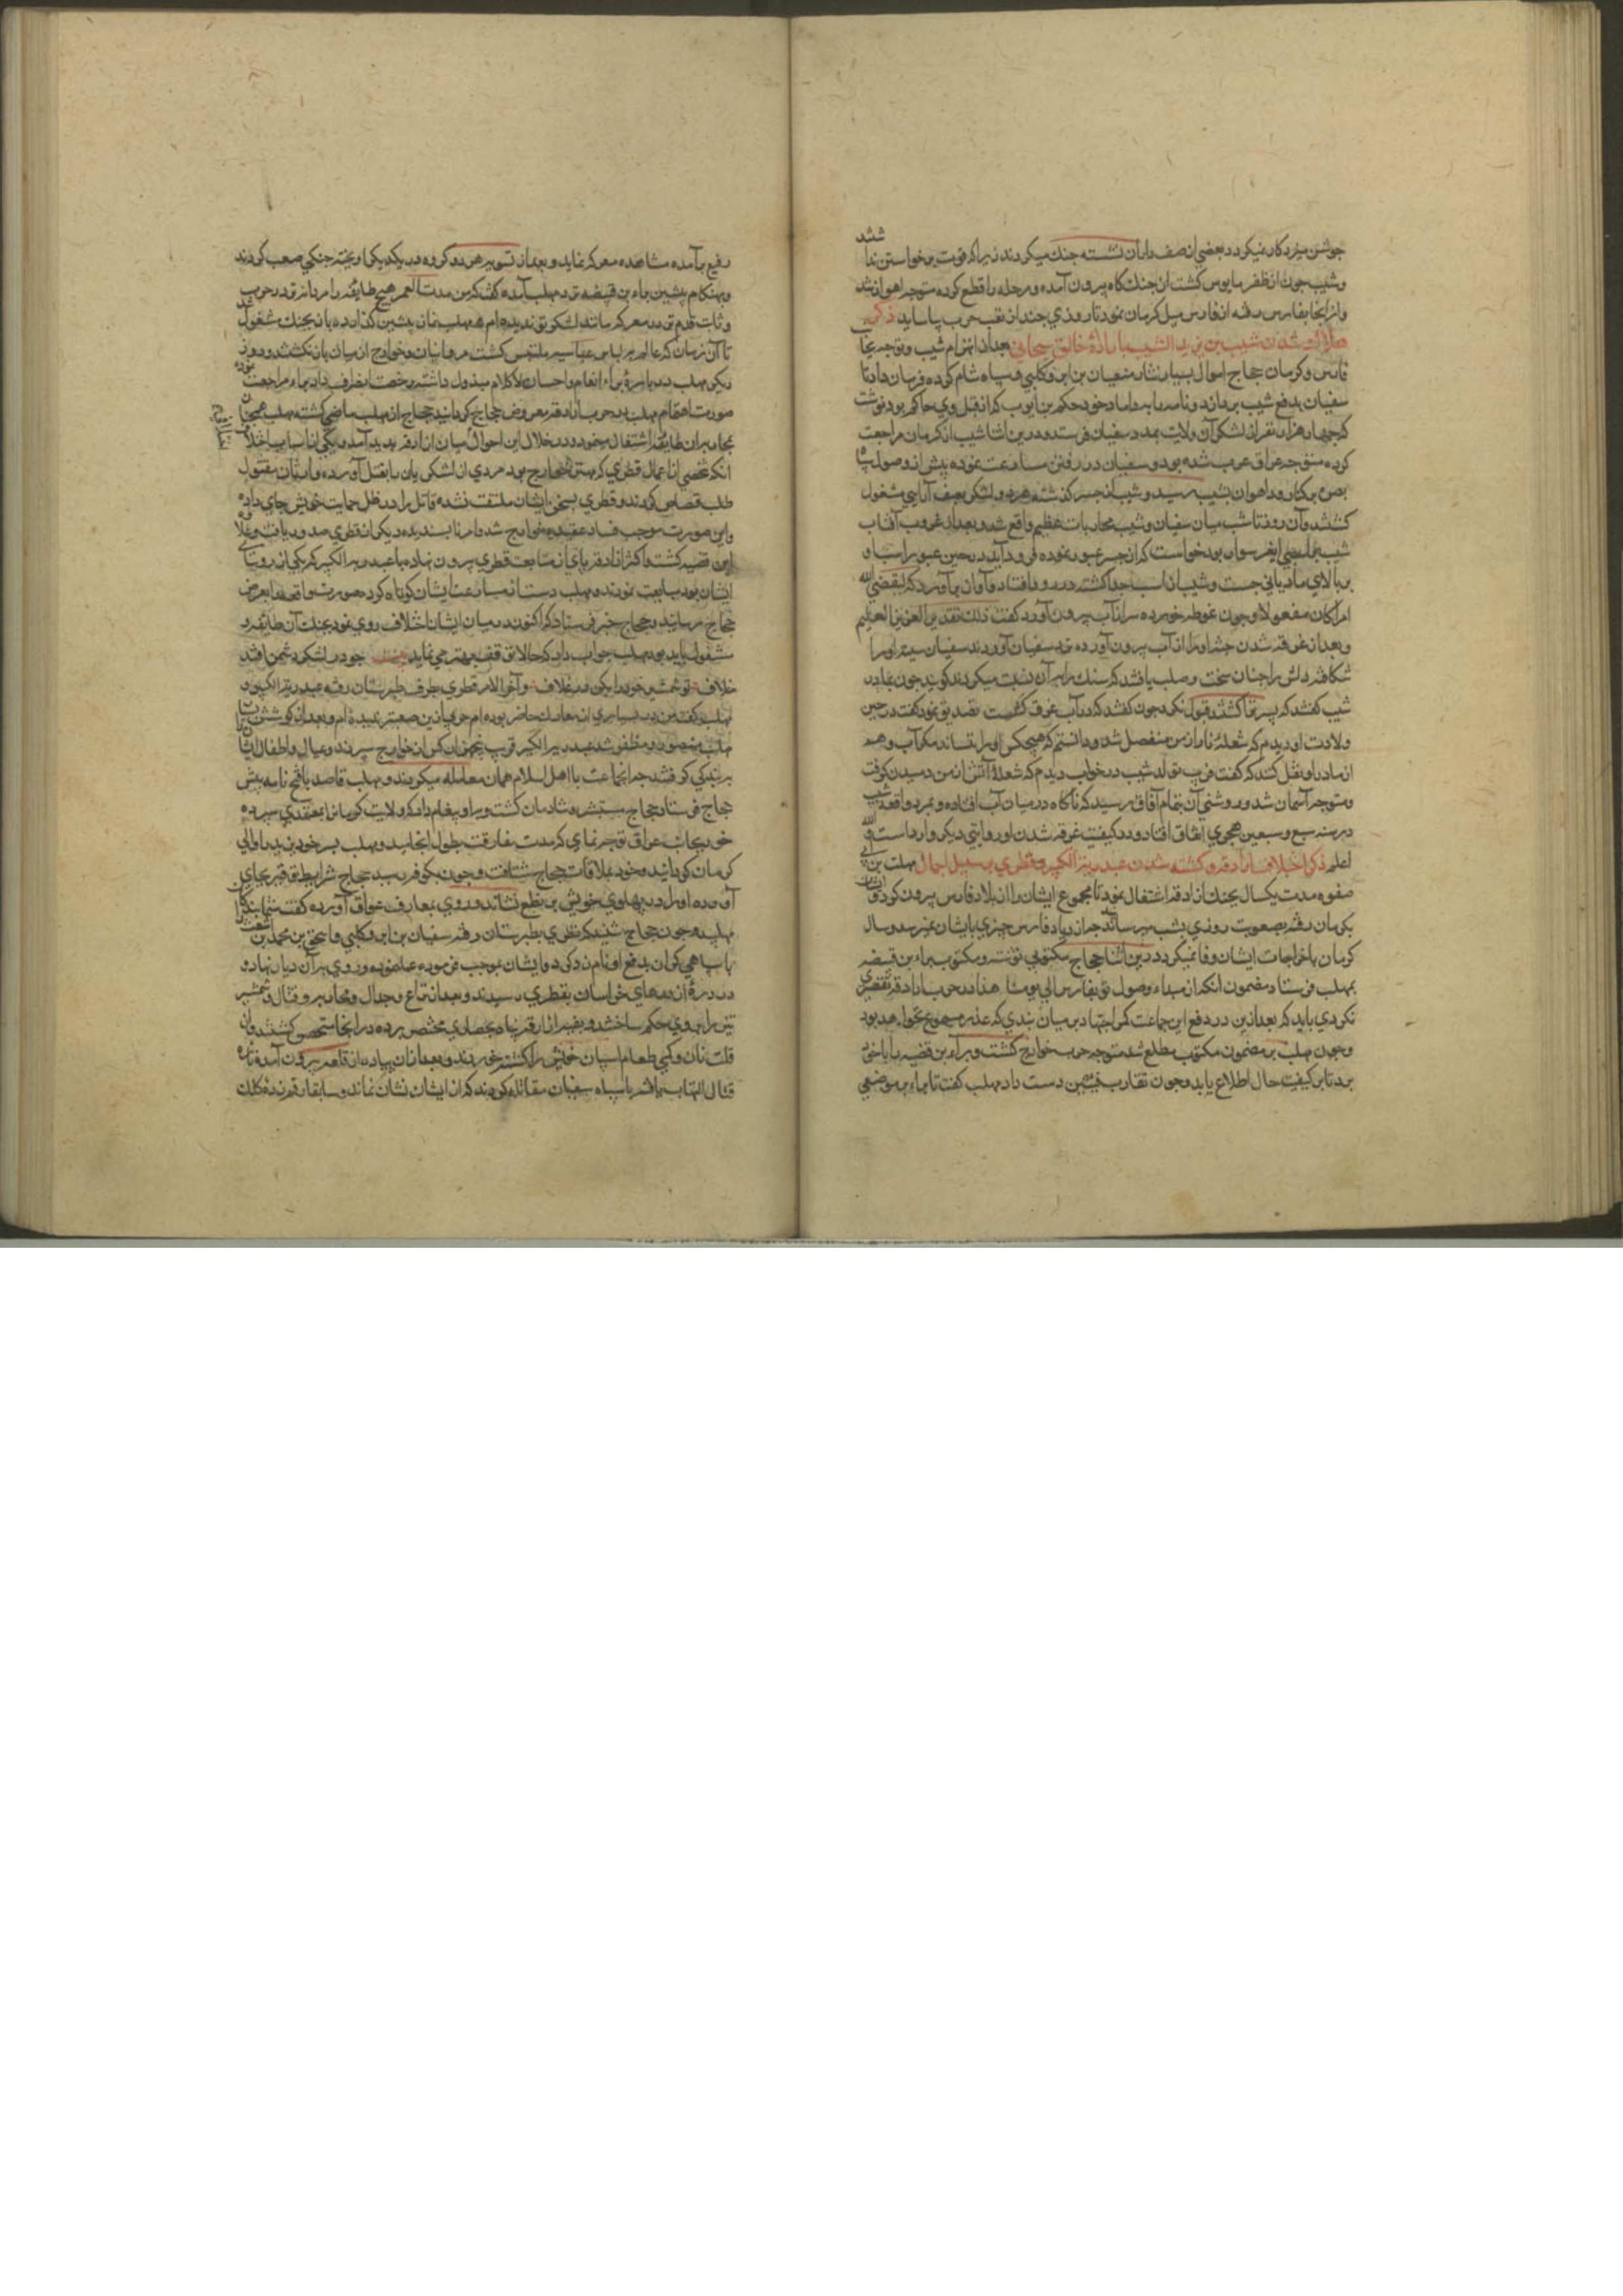 جوشن میزد کار نمیکرد و بعضی از صف داران نشسته جنك میکردند زیرا که قوت برخواستن نداشتند
و شبیب چون از ظفر مایوس کشت از جنك کاه بیرون آمده و مرحله را قطع کرده متوجه اهواز شد
و از انجا بفارس رفته از فارس میل کرمان نمود تا روزی چند از تعب حرب بیاساید ذکر
هلاك شدن شبیب بن یزید الشیبانی بارادهٔ خالق سبحانی بعد از انهزام شبیب و توجه بجانب
فارس و کرمان حجاج اموال بسیار نثار سفیان بن ابرد کلبی و سپاه شام کرده فرمان داد تا
سفیان بدفع شبیب پردازد و نامه بداماد خود حکم بن ایوب که از قبل وی حاکم بود نوشت
که چهار هزار نفر از لشکر آن ولایت بمدد سفیان فرستد و درین اثنا شبیب از کرمان مراجعت
کرده متوجه عراق عرب شده بود و سفیان در رفتن مسارعت نموده پیش از وصول سپاه
بصره بر کنار رود اهواز بشبیب رسید و شبیب از جسر کذشته هر دو لشکر بصف آرایی مشغول
کشتند و آن روز تا شب میان سفیان و شبیب محاربات عظیم واقع شد و بعد از غروب آفتاب
شبیب بر اسپی ایغر سوار بود خواست که از جسر عبور نموده فرود آید در حین عبور اسپ او
بر بالای مادیانی جست و شبیب از اسپ جدا کشته در رود افتاد و آواز برآورد که لیقضی الله
امرا کان مفعولا و چون غوطه خورده سر از آب بیرون آورد کفت ذلك تقدیر العزیز العلیم
و بعد از غرقه شدن جثه او را از آب بیرون آورده نزد سفیان آوردند سفیان سینه او را
شکافته دلش را چنان سخت و صلب یافتند که سنك را بر آن نسبت میکردند کویند چون بمادر
شبیب کفتند که پسر ترا کشتند قبول نکرد چون کفتند که در آب غرق کشت تصدیق نمود کفت در حین
ولادت او دیدم که شعلهٔ نار از من منفصل شد و دانستم که هیچکس او را نشاند مکر آب و هم
از مادر او نقل کنند که کفت قریب بتولد شبیب در خواب دیدم که شعلهٔ آتش از من دمیدن کرفت
و متوجه آسمان شد و روشنی آن بتمام آفاق رسید که ناکاه در میان آب افتاده و بمرد واقعه شبیب
در سنه سبع و سبعین هجری اتفاق افتاد و در کیفیت غرقه شدن او روایتی دیکر وارد است والله
اعلم ذکر اختلاف ازارقه و کشته شدن عبد ربه الکبیر و قطری بر سبیل اجمال مهلب بن ابی
صفره مدت یکسال بجنك ازارقه اشتغال نمود تا مجموع ایشان را از بلاد فارس بیرون کرد و آن
بکرمان رفته بصعوبت روزی بشب میرساندند چه از دیار فارس چیزی بایشان نمیرسد و سال
کرمان باخراجات ایشان وفا نمیکرد و درین اثنا حجاج مکتوبی نوشته و مکتوب ببراء بن قبیصه
بمهلب فرستاد مضمون انکه از مبداء وصول تو بفارس الی یومنا هذا در حرب ازارقه تقصیری
نکردی باید که بعد ازین در دفع این جماعت کمر اجتهاد بر میان بندی که عذر مسموع نخواهد بود
و چون مهلب بر مضمون مکتوب مطلع شد متوجه حرب خوارج کشت و براء بن قبیصه را با خود
برد تا بر کیفیت حال اطلاع یابد و چون تقارب فئتین دست داد مهلب کفت تا براء بر موضعی
رفیع برآمده مشاهده معرکه نماید و بعد از تسویه هر دو کروه در یکدیکر اویخته جنکی صعب کردند
و بهنکام پیشین براء بن قبیصه نزد مهلب آمده کفت که من مدت العمر هیچ طایفه را مردانه تر در حرب
و ثابت قدم تر در معرکه مانند لشکر تو ندیده ام مهلب نماز پیشین کذارده باز بجنك مشغول شد
تا آن زمان که عالم بلباس عباسیه ملتبس کشت مروانیان و خوارج از میان باز نکشتند و روز
دیکر مهلب در بارهٔ براء انعام و احسان مبذول داشته رخصت انصراف داد براء مراجعت نموده
صورت اهتمام مهلب در حرب ازارقه معروض حجاج کردانید حجاج از مهلب راضی کشته مهلب همچنان
بمحاربه آن طایفه اشتغال مینمود و در خلال این احوال میان ازارقه پدید آمد و یکی از اسباب اختلاف
انکه شخصی از عمال قطری که مهتر خوارج بود مردی از لشکریان را بقتل آورده وارثان مقتول
طلب قصاص کردند و قطری بسخن ایشان ملتفت نشده قاتل را در ظل حمایت خویش جای داده
و این صورت موجب فساد عقیده خوارج شد و امر ناپسندیده دیکر از قطری صدور یافت و علاوه
این قضیه کشت و اکثر ازارقه پای از متابعت قطری بیرون نهاده با عبد ربه الکبیر که یکی از رؤسای
ایشان بود بیعت نمودند و مهلب دست از ممانعت ایشان کوتاه کرده صورت واقعه را بعرض
حجاج رسانید و حجاج خبر فرستاد که اکنون که در میان ایشان اختلاف روی نمود بجنك آن طایفه
مشغول باید بود مهلب جواب داد که حالا توقف بهتر می نماید چو در لشکر دشمن افتد
خلاف تو شمشیر خود را بکن در غلاف و آخر الامر قطری بطرف طبرستان رفته عبد ربه الکبیر
مهلب کفت من در بسیاری از معارك حاضر بوده ام حربی ازین صعبتر ندیده ام و بعد از کوشش بسیار
مهلب منصور و مظفر شد عبد ربه الکبیر قریب پنجهزار کس از خوارج سپردند و عیال و اطفال ایشان را
ببندکی کرفتند چه انجماعت با اهل اسلام همان معامله میکردند و مهلب قاصد با فتح نامه پیش
حجاج فرستاد حجاج مستبشر و شادمان کشت و باو پیغام داد که ولایت کرمان را بمعتمدی سپرده
خود بجانب عراق توجه نمای که مدت مفارقت بطول انجامید و مهلب پسر خود یزید را والی
کرمان کردانید و خود بملاقات حجاج شتافت و چون بکوفه رسید حجاج شرایط توقیر بجای
آورده او را در پهلوی خویش بر نطع نشاند و روی بمعارف عراق آورده کفت شما بندکان
مهلبید و چون حجاج شنید که قطری بطبرستان رفته سفیان بن ابرد کلبی و اسحق بن محمد بن اشعث را
با سپاهی کران بدفع او نامزد کرد و ایشان بموجب فرموده عمل نموده و روی بر آن دیار نهاد و
در درهٔ از درهای خراسان بقطری رسیدند و بعد از نزاع و جدال و محاربه و قتال و شمشیر
تیز را بر وی حکم ساختند و بقیه ازارقه پناه بحصاری مختصر برده در انجا متحصن کشتند و از
قلت نان و کمی طعام اسپان خویش را کشته خوردند و بعد از آن پیاده از قلعه بیرون آمده نایره
قتال التهاب یافته با سپاه سفیان مقاتله کردند که از ایشان نشان نماند و سابقا رقم زده کلك